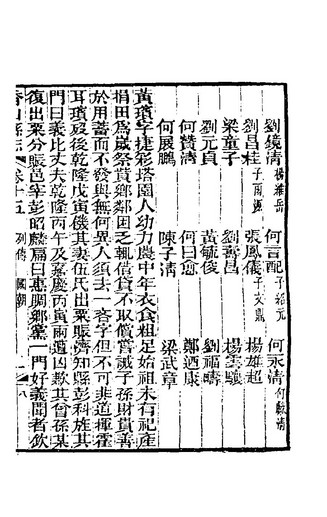 劉鏡清 楊維岳 何言配 子紹元 何永清 何毓清
劉昌桂 張鳳儀 子文鼎 楊雄超
梁童子 劉壽昌 楊雲驤
劉元貞 黃毓俊 劉福疇
何贊清 何曰愈 鄭迺康
何展鵬 陳子清 梁武章
黃瓚字捷彩塔園人幼力農中年衣食粗足始祖未有祀產
捐田爲歲祭貲鄉鄰困乏輒借貸不取償嘗誡子孫財貴善
於用蓄而不發與無何異人須去一吝字但不可非道揮霍
耳瓚歿後乾隆戊寅磯其妻伍氏出粟賑濟知縣彭科旌其
門曰義比丈夫乾隆丙午及嘉慶丙寅兩遒凶歉其曾孫某
復出粟分賑邑宰彭昭麟扁曰惠周鄉黨一門好義聞者欽
香山縣志 卷十五 列傳 國朝 八